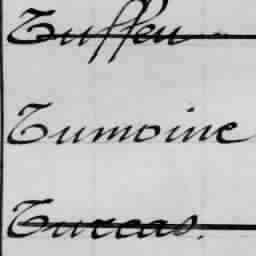 Tuffeu
Tumoine
Turcas.